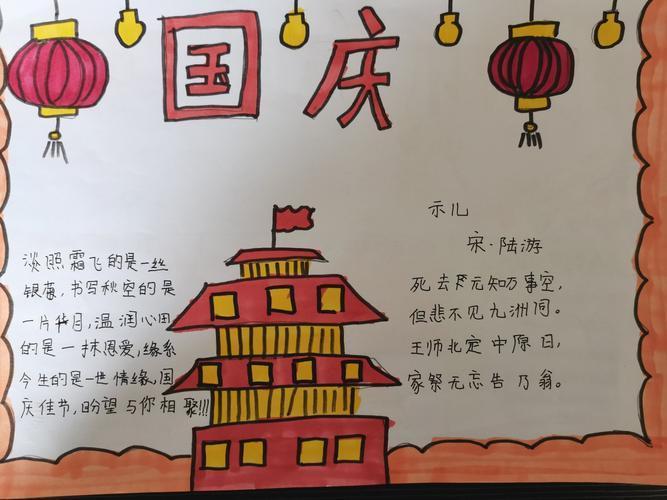 国庆
淡照霜飞的是一丝
银蔻，书写秋空的是
一片华月，温润心田
的是一抹恩爱，缘系
今生的是一世情缘，国
庆佳节，盼望与你相聚!!!
示儿
宋·陆游
死去元知万事空，
但悲不见九洲同。
王师北定中原日，
家祭无忘告乃翁。